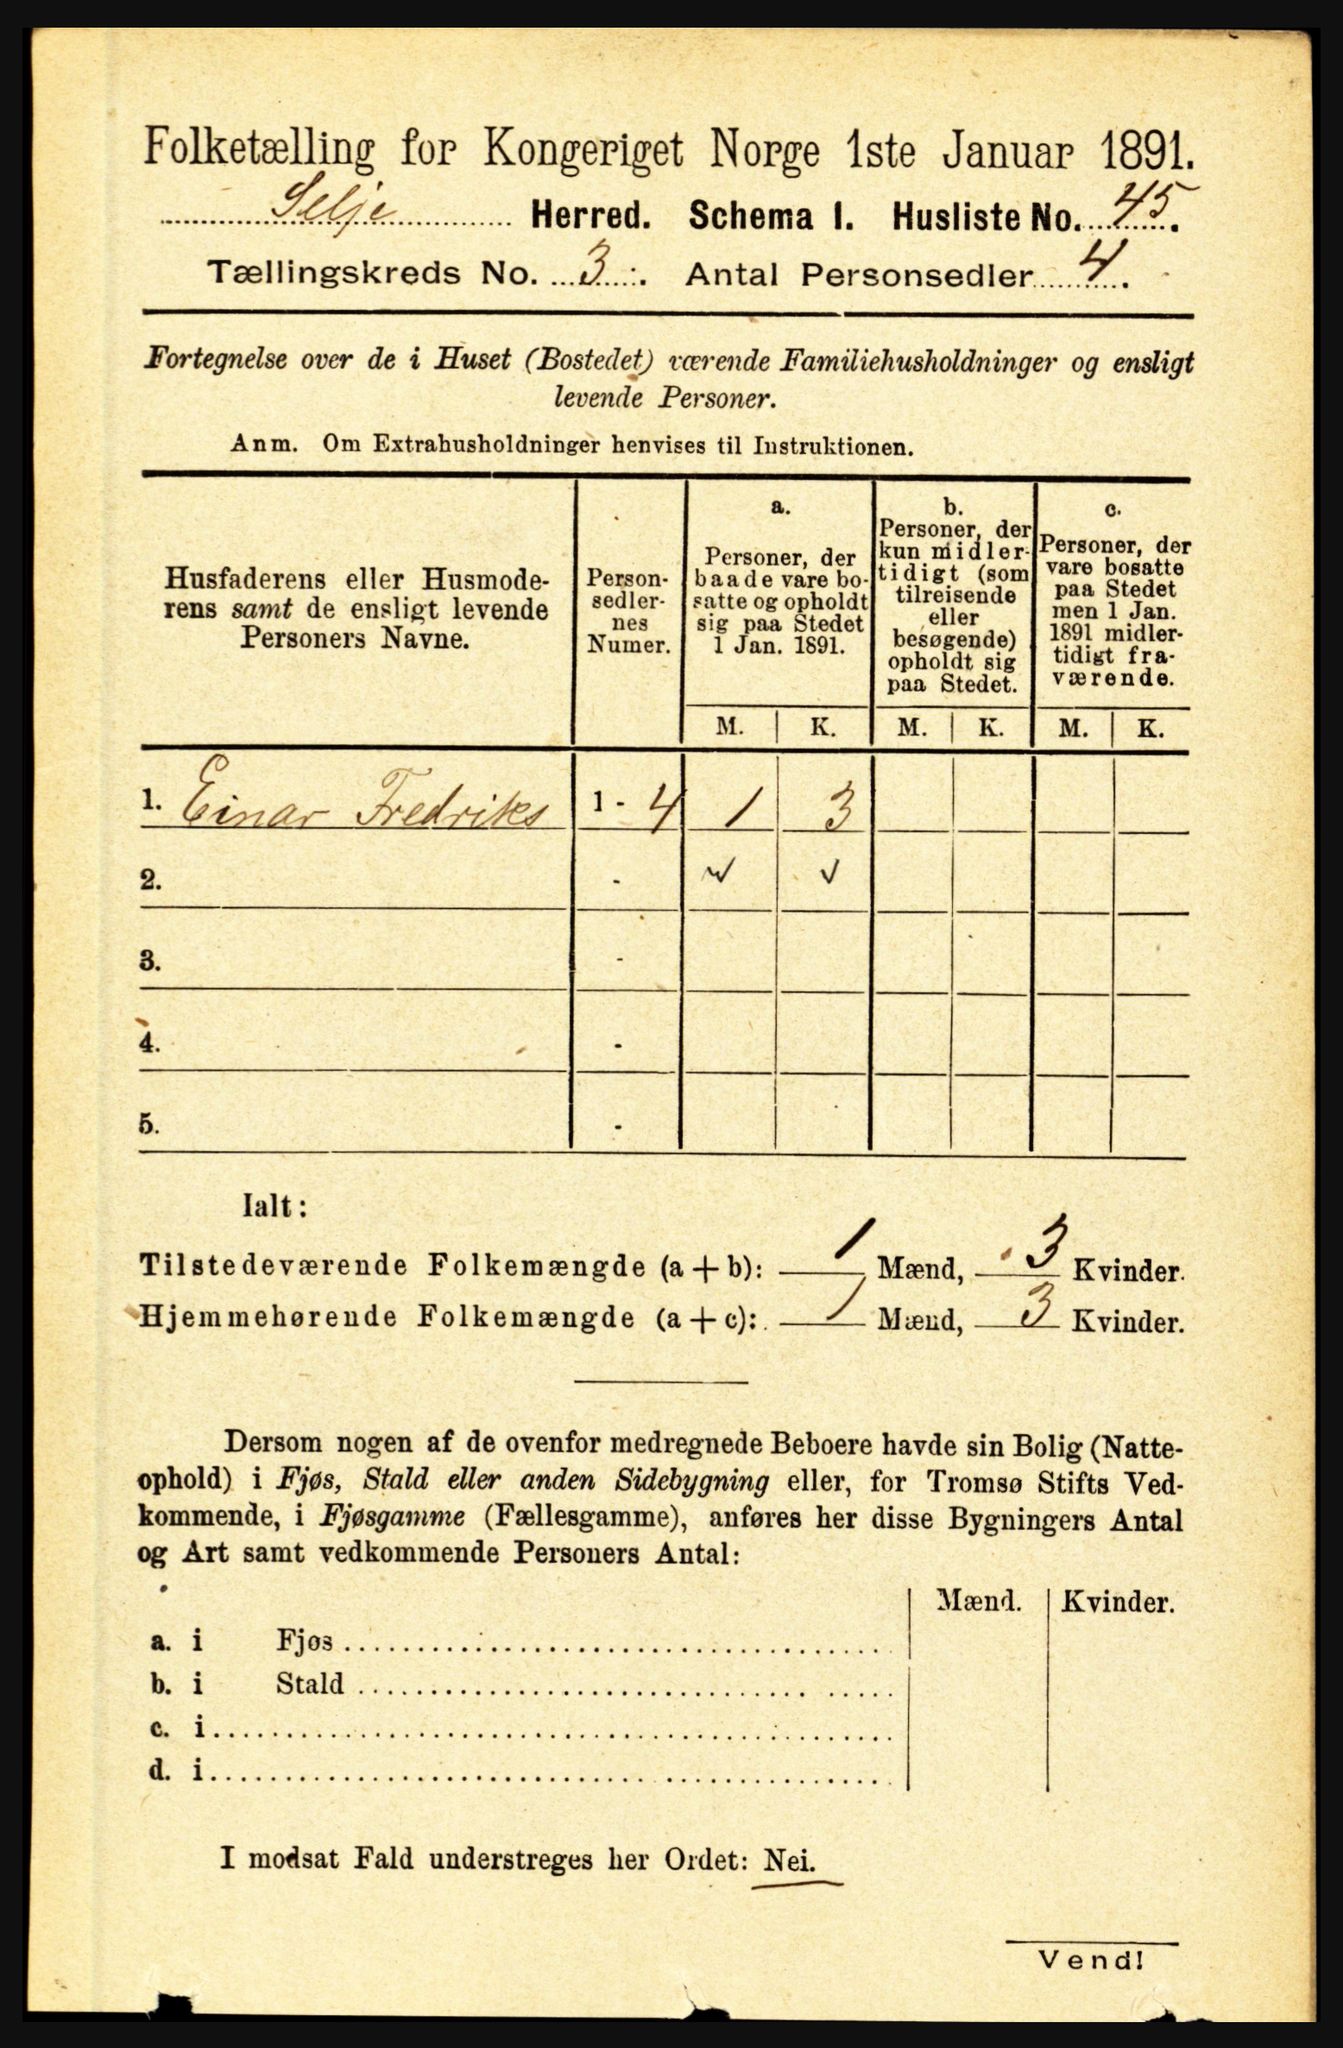 Folketælling for Kongeriget Norge 1ste Januar 1891.
Selje Herred. Schema I. Husliste No. 45.
Tællingskreds No. 3. Antal Personsedler 4.
Fortegnelse over de i Huset (Bostedet) værende Familiehusholdninger og ensligt
levende Personer.
Anm. Om Extrahusholdninger henvises til Instruktionen.
Husfaderens eller Husmode-
rens samt de ensligt levende
Personers Navne.
Person-
sedler-
nes
Numer.
a.
Personer, der
baade vare bo-
satte og opholdt
sig paa Stedet
1 Jan. 1891.
b.
Personer, der
kun midler-
tidigt (som
tilreisende
eller
besøgende)
opholdt sig
paa Stedet.
c.
Personer, der
vare bosatte
paa Stedet
men 1 Jan.
1891 midler-
tidigt fra-
værende.
M. K. M. K. M. K.
1. Einar Fredriks 1 - 4 1 3
2. -
3. -
4. -
5. -
Ialt:
Tilstedeværende Folkemængde (a + b): 1 Mænd, 3 Kvinder.
Hjemmehørende Folkemængde (a + c): 1 Mænd, 3 Kvinder.
Dersom nogen af de ovenfor medregnede Beboere havde sin Bolig (Natte-
ophold) i Fjøs, Stald eller anden Sidebygning eller, for Tromsø Stifts Ved-
kommende, i Fjøsgamme (Fællesgamme), anføres her disse Bygningers Antal
og Art samt vedkommende Personers Antal:
Mænd. Kvinder.
a. i Fjøs
b. i Stald
c. i
d. i
I modsat Fald understreges her Ordet: Nei.
Vend!